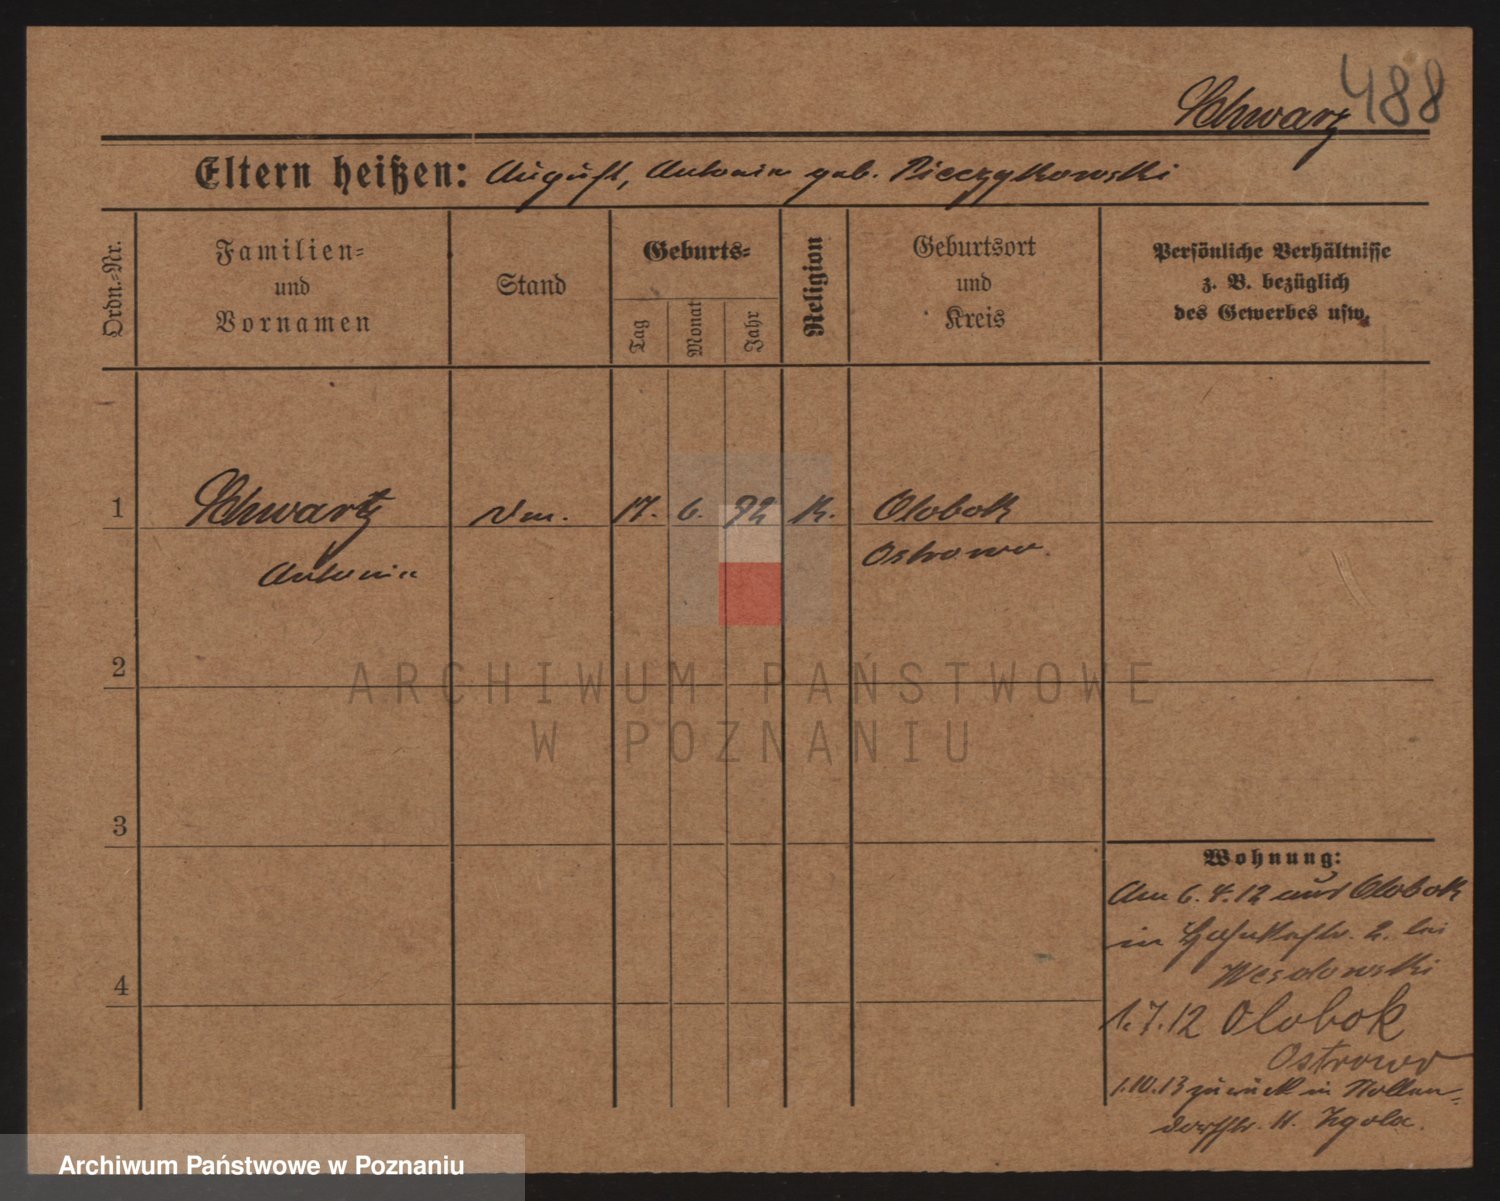 488
Schwarz
Eltern heißen: August, Antonie geb. Pieczykowski
Ordn.-Nr.
Familien-
und
Vornamen
Stand
Geburts-
Tag
Monat
Jahr
Religion
Geburtsort
und
Kreis
Persönliche Verhältnisse
z. B. bezüglich
des Gewerbes usw.
1 Schwartz 17. 6. 92 K. Olobok
Antonie Ostrowo.
2
ARCHIWUM PAŃSTWOWE
W POZNANIU
3
Wohnung:
Am 6.4.12 aus Olobok
in 2. bei
Wesolowski
4
1.7.12 Olobok
Ostrowo
1.10.13 zurück in Nollen-
dorfstr. Zgola.
Archiwum Państwowe w Poznaniu